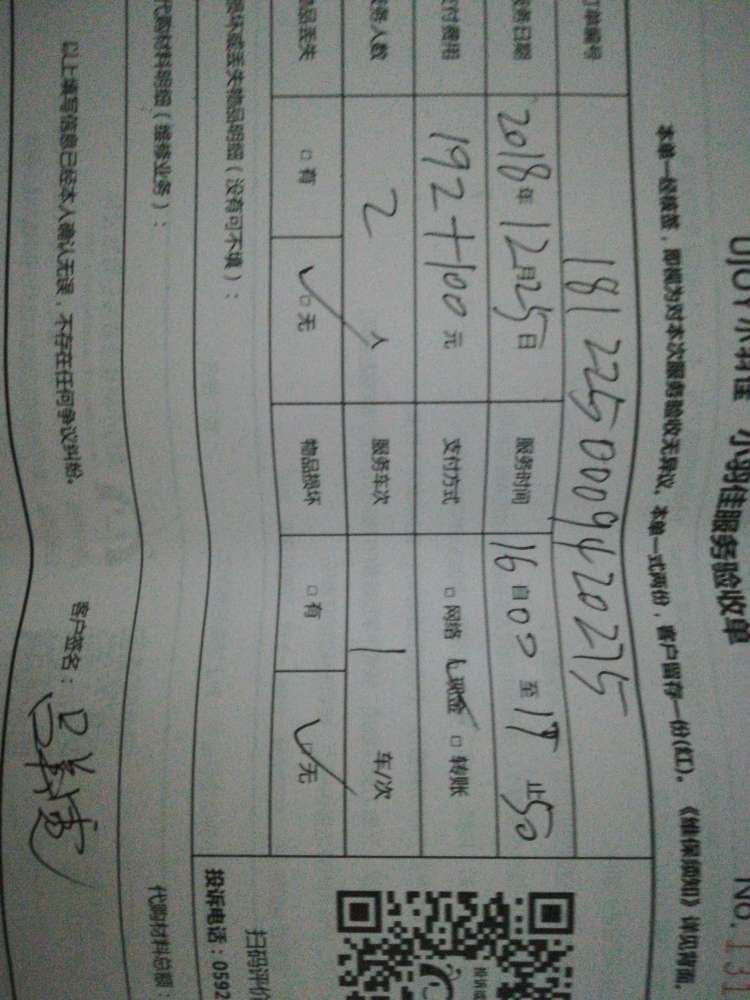 小羽佳服务验收单
No.131
本单一经核签，即视为对本次服务验收无异议。本单一式两份，客户留存一份(红)。《维保须知》详见背面。
订单编号 1812250009420275
服务日期 2018年12月25日 服务时间 16自00至17止50
支付费用 192+100元 支付方式 □网络 ✓现金 □转账
服务人数 2人 服务车次 1 车/次
物品丢失 □有 ✓□无 物品损坏 □有 ✓□无
损坏或丢失物品明细（没有可不填）：
扫码评价
投诉电话：0592
代购材料明细（维修业务）：
代购材料总额：
以上填写信息已经本人确认无误，不存在任何争议纠纷。 客户签名：